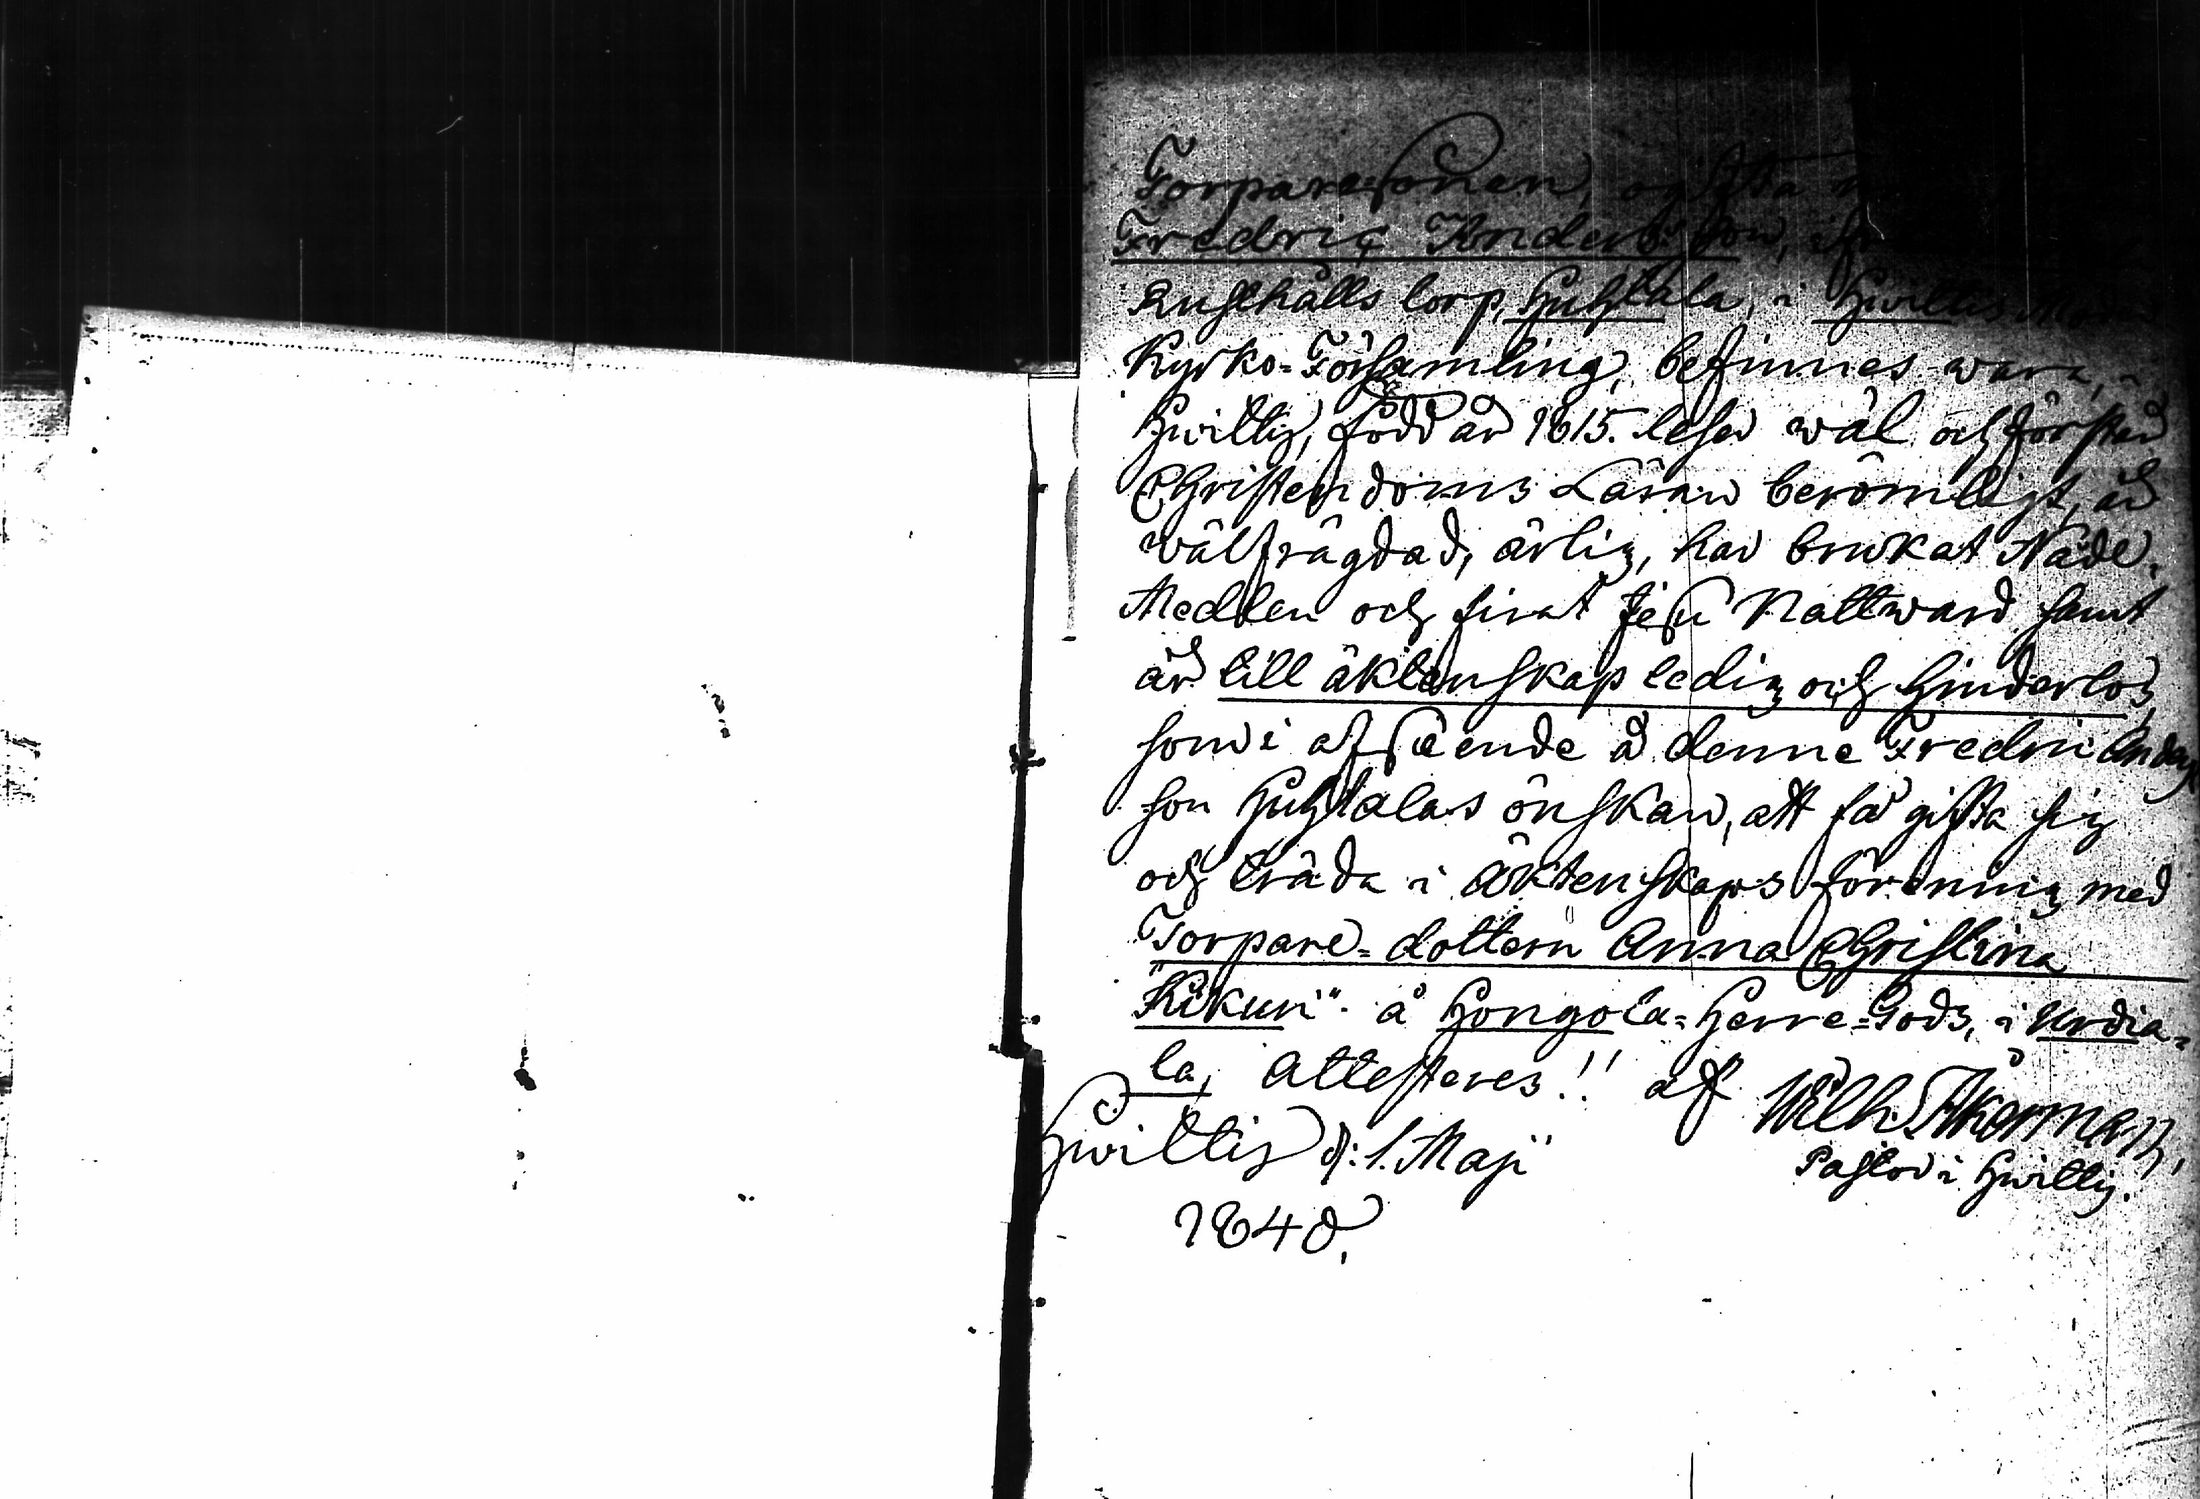 Torpare-Sonen, ogifta
Fredric Anders Son, ifrån
Rusthålls torp, Huhtala, i Hwittis Moder
Kyrko-Församling, befinnes wara, i
Hwittis, född år 1815. läser wäl och förstår
Christendoms Läran berömligt, är
wälfrägdad, ärlig, har brukat Nåde-
Medlen och firat Jesu Nattward samt
är till äktenskap ledig och hinderlös,
som i afseende å denne Fredric Anders
son Huhtalas önskan, att få gifta sig
och träda i äktenskaps förening med
Torpare-dottern Anna Christina
"Kukuri" å Hongola-Herre-Gods, i Urdia-
la, attesteres!! af Wilh. Åkerman,
Hwittis d: 1. Maji Pastor i Hwittis.
1840.